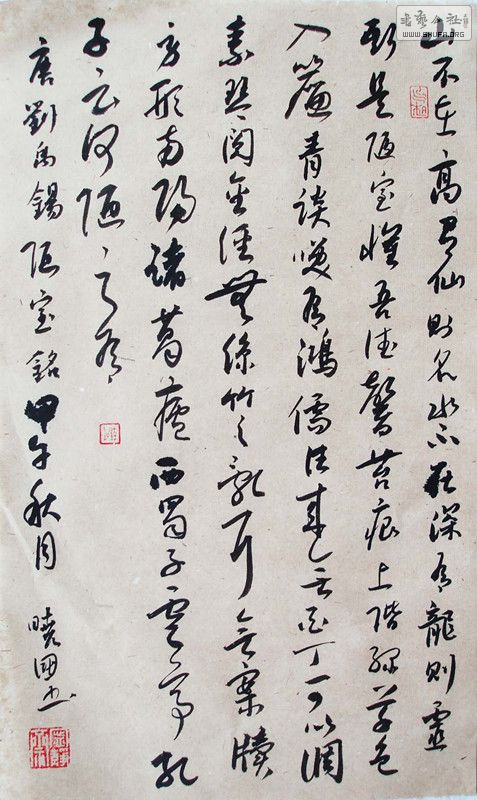 書藝公社
WWW.SHUFA.ORG
山不在高有仙则名水不在深有龍则靈
斯是陋室惟吾德馨苔痕上階绿草色
入簾青谈笑有鴻儒往来無白丁可以调
素琴阅金经無絲竹之乱耳無案牘
劳形南阳諸葛廬西蜀子雲亭孔
子云何陋之有
唐劉禹錫陋室銘甲午秋月
曉國书